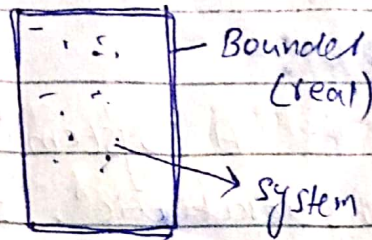 Bounded
(real)
system